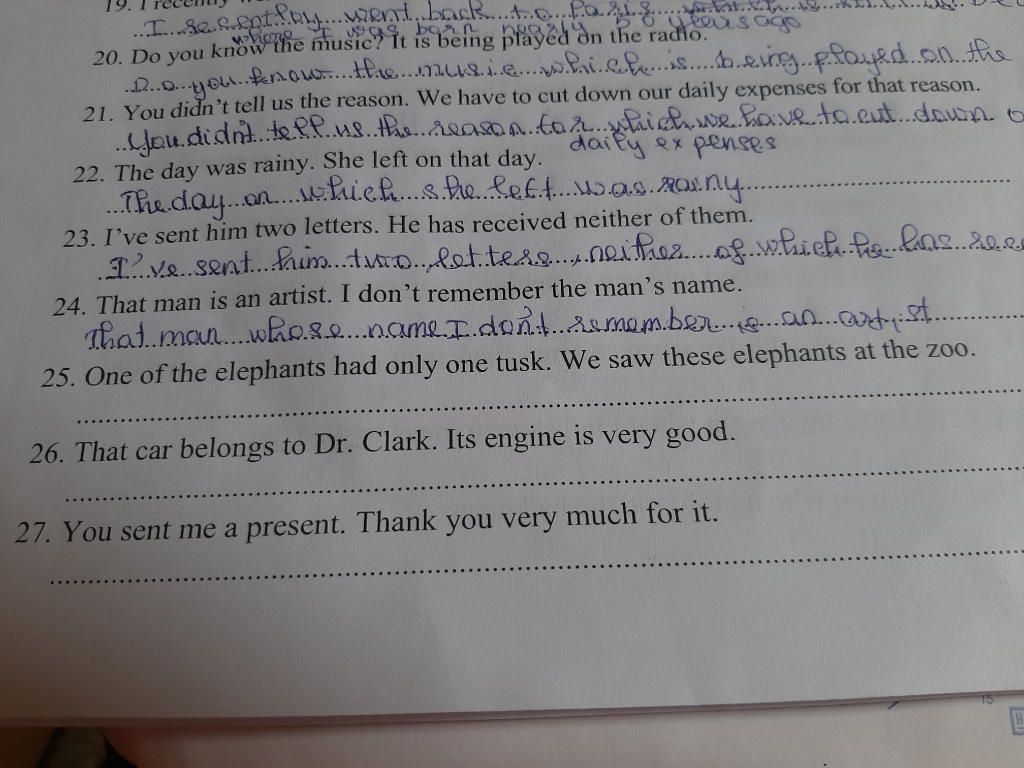 19. I recently
I recently went back to Paris
where I was born nearly 50 years ago
20. Do you know the music? It is being played on the radio.
Do you know the music which is being played on the
21. You didn't tell us the reason. We have to cut down our daily expenses for that reason.
You didn't tell us the reason for which we have to cut down o
daily expenses
22. The day was rainy. She left on that day.
The day on which she left was rainy
23. I've sent him two letters. He has received neither of them.
I've sent him two letters, neither of which he has rece
24. That man is an artist. I don't remember the man's name.
That man whose name I don't remember is an artist
25. One of the elephants had only one tusk. We saw these elephants at the zoo.
26. That car belongs to Dr. Clark. Its engine is very good.
27. You sent me a present. Thank you very much for it.
15